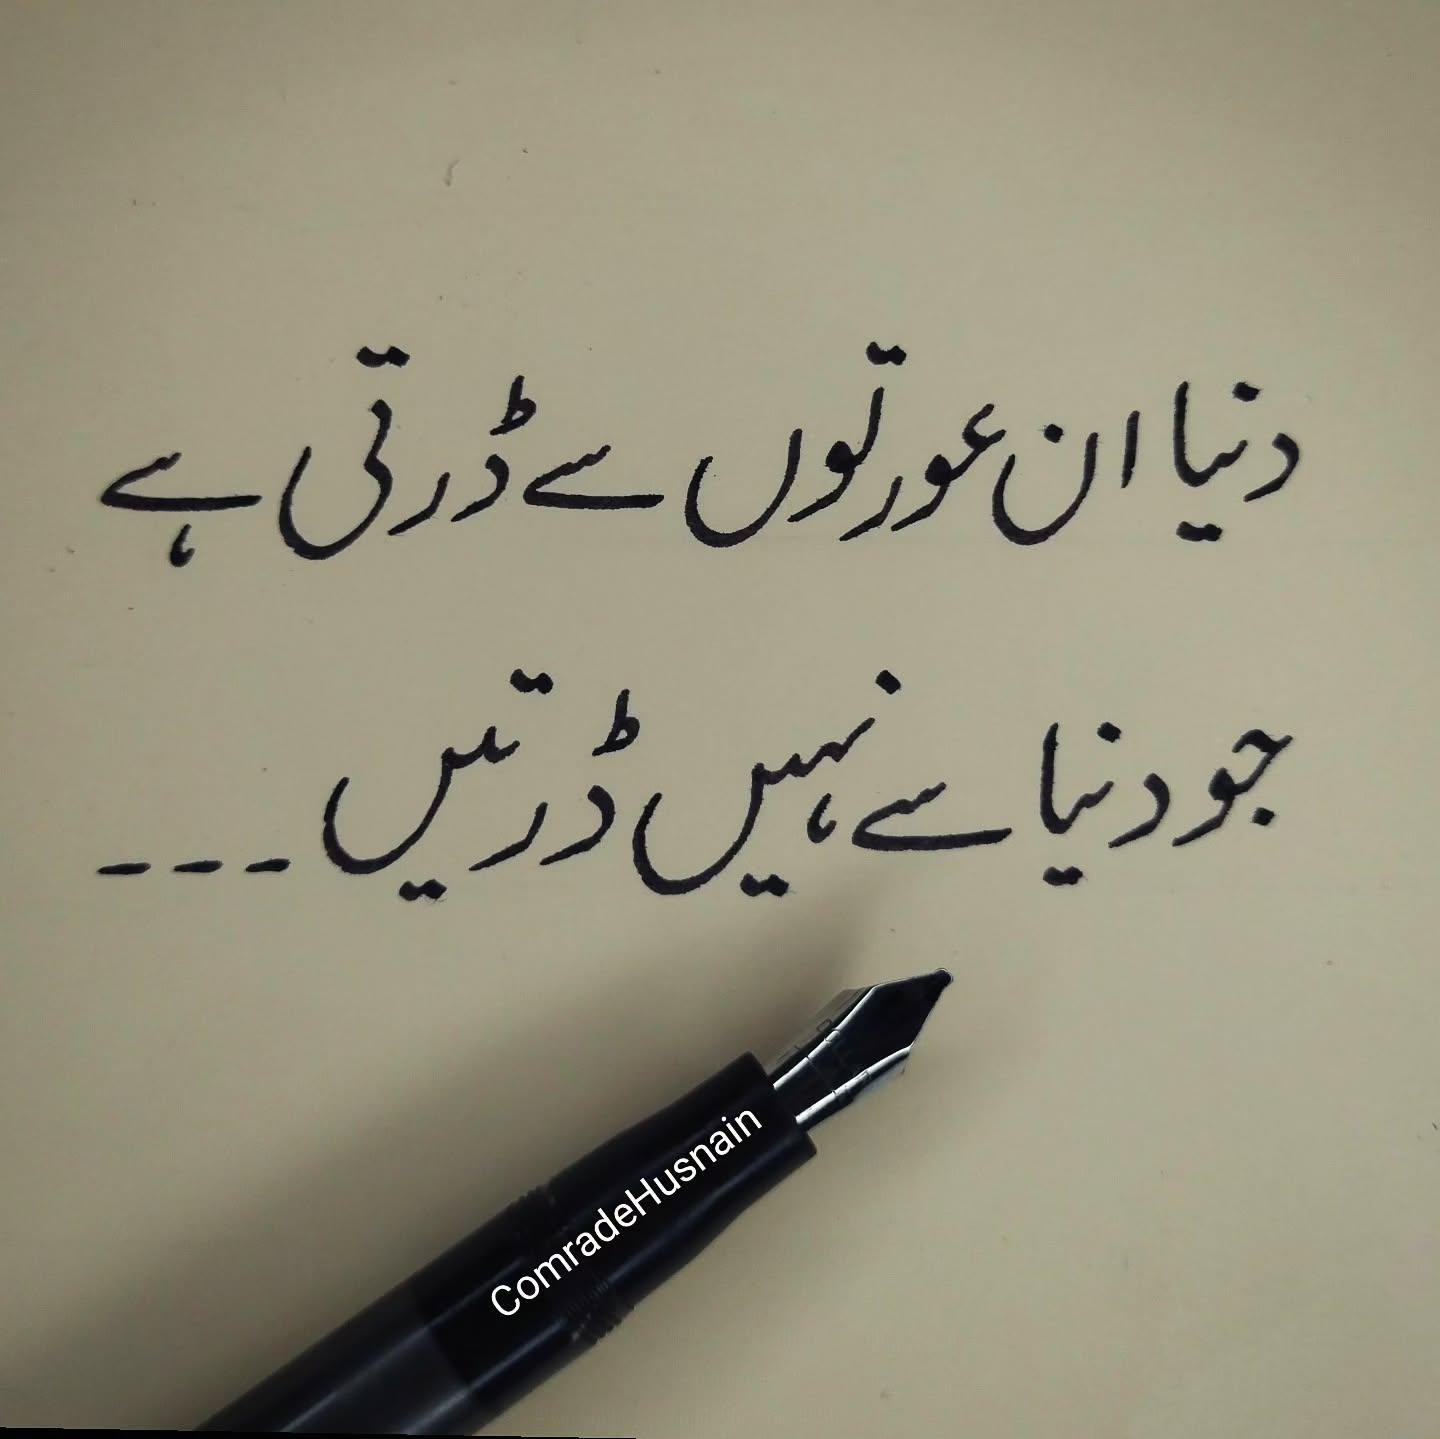 دنیا ان عورتوں سے ڈرتی ہے
جو دنیا سے نہیں ڈرتیں ---
ComradeHusnain